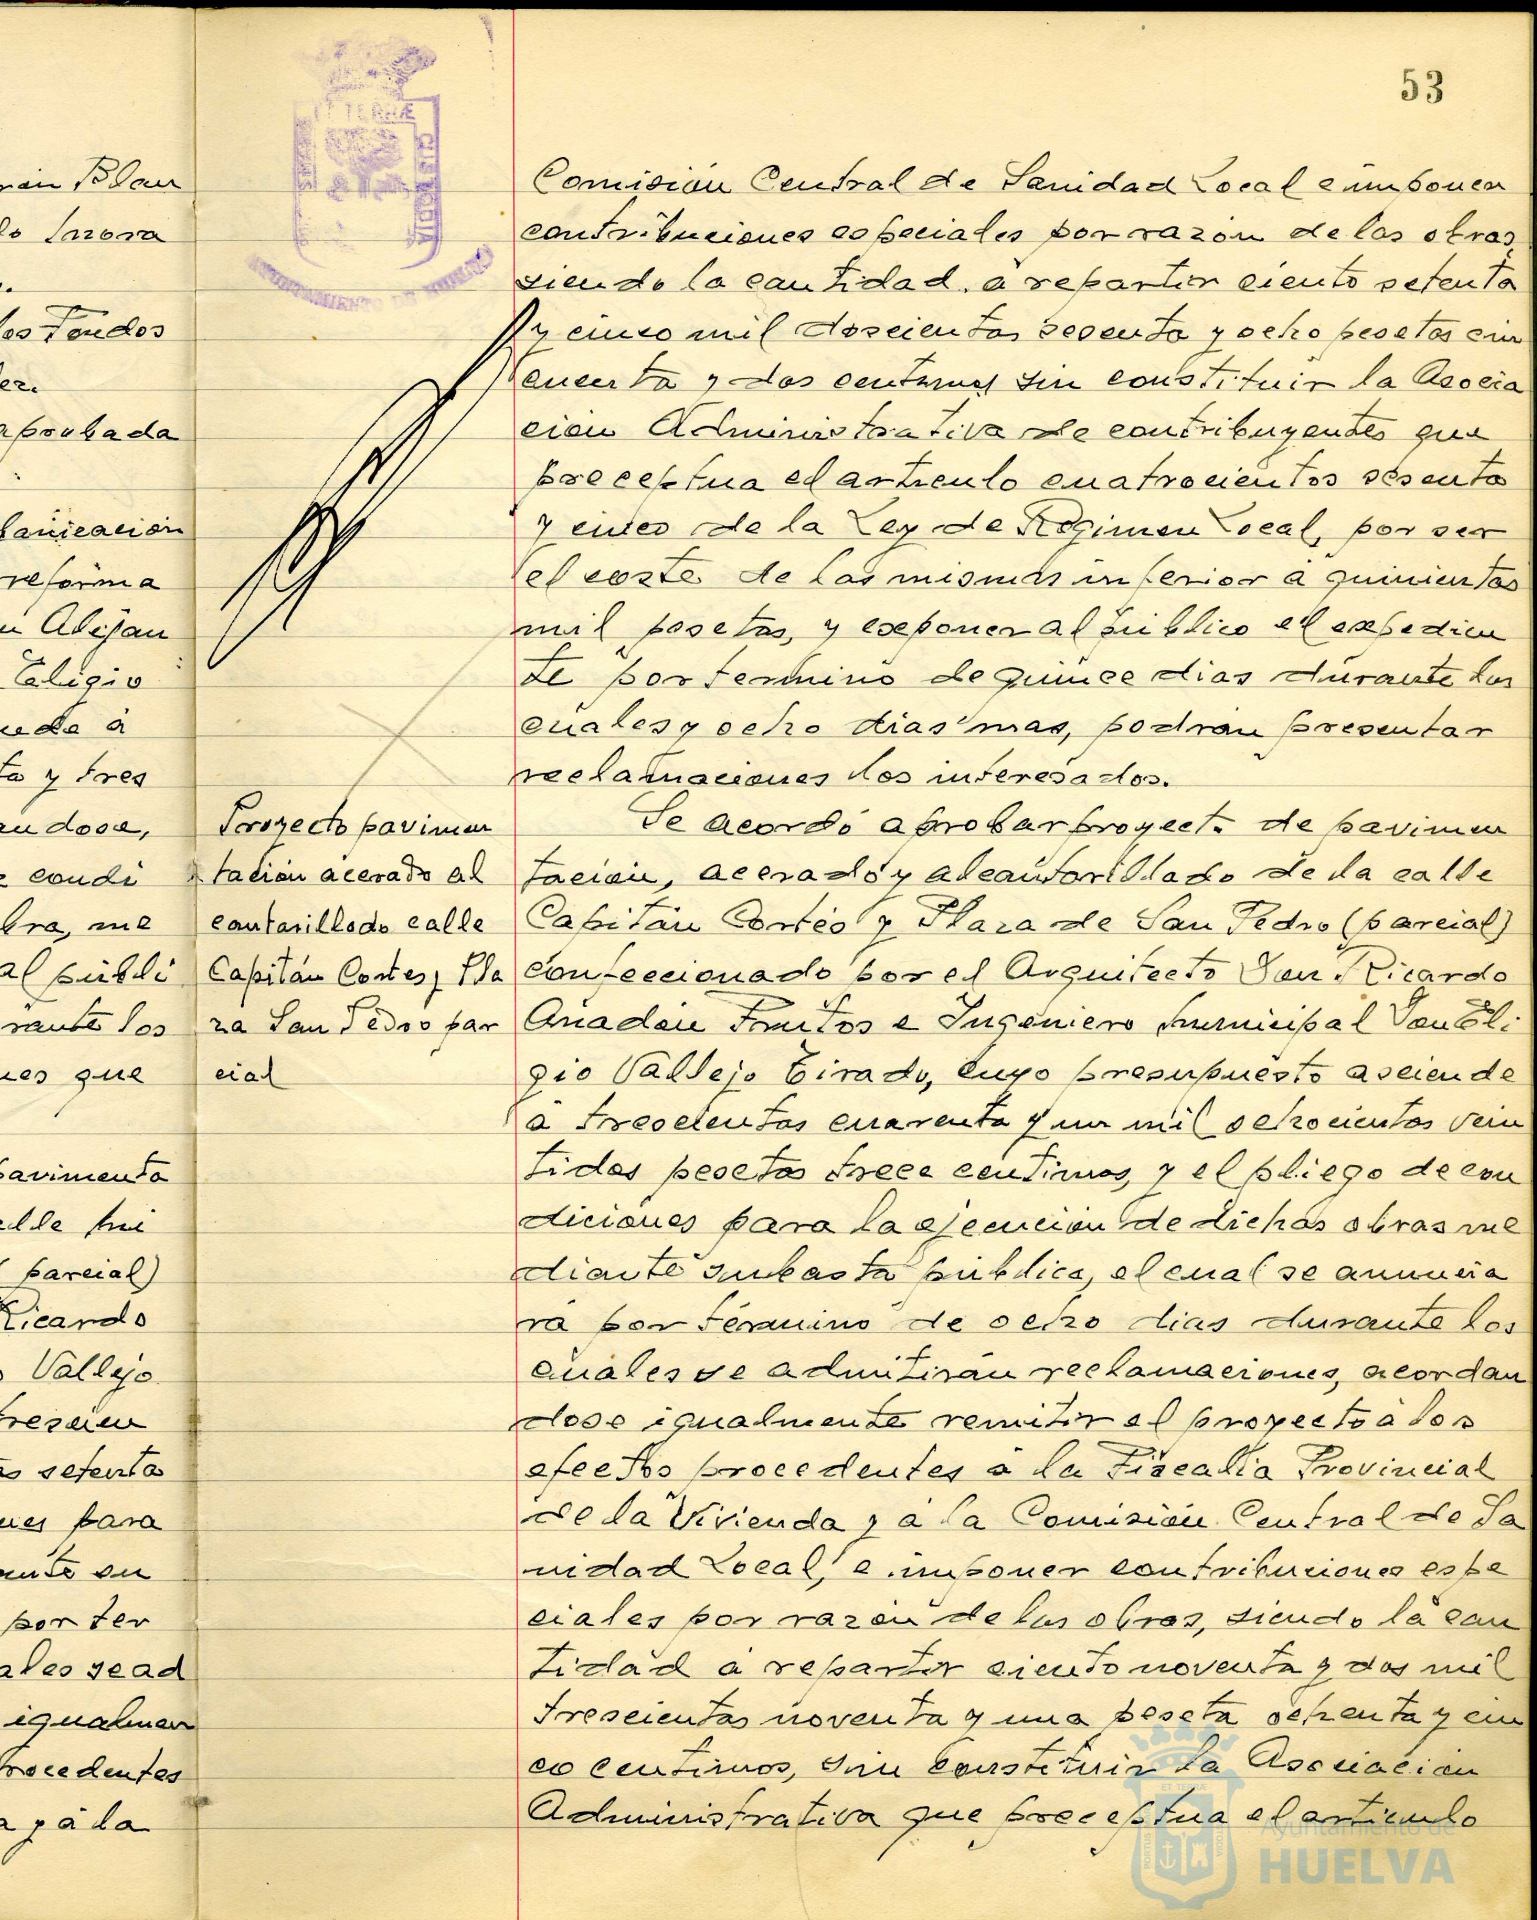 53
rán Blan
los Fondos
aprobada
reforma
n Alejan
Eligio
uede á
ta y tres
andose,
condi
bra, me
al públi
rante los
nes que
pavimenta
alle
parcial)
Ricardo
Vallejo
trescien
setenta
nes para
por ter
ales se ad
igualmen
rocedentes
a y á la
ET TERRÆ
CUSTODIA
AYUNTAMIENTO DE HUELVA
Proyecto pavimen
tación acerado al
cantarillado calle
Capitán Cortes y Pla
za San Pedro par
cial
Comisión Central de Sanidad Local e imponer
contribuciones especiales por razón de las obras,
siendo la cantidad á repartir ciento setenta
y cinco mil doscientas sesenta y ocho pesetas cin
cuenta y dos centimos sin constituir la Asocia
ción Administrativa de contribuyentes que
preceptua el articulo cuatrocientos sesenta
y cinco de la Ley de Régimen Local, por ser
el coste de las mismas inferior á quinientas
mil pesetas, y exponer al público el expedien
te por termino de quince dias durante los
cuales y ocho dias mas, podrán presentar
reclamaciones los interesados.
Se acordó aprobar proyecto de pavimen
tación, acerado y alcantarillado de la calle
Capitán Cortés y Plaza de San Pedro (parcial)
confeccionado por el Arquitecto Don Ricardo
Anadón Frutos e Ingeniero Municipal Don Eli
gio Vallejo Tirado, cuyo presupuesto asciende
á trescientas cuarenta y un mil ochocientas vein
tidos pesetas trece centimos, y el pliego de con
diciones para la ejecución de dichas obras me
diante subasta pública, el cual se anuncia
rá por término de ocho dias durante los
cuales se admitirán reclamaciones, acordan
dose igualmente remitir el proyecto á los
efectos procedentes á la Fiscalia Provincial
de la Vivienda y á la Comisión Central de Sa
nidad Local, e imponer contribuciones espe
ciales por razón de las obras, siendo la can
tidad á repartir ciento noventa y dos mil
trescientas noventa y una peseta ochenta y cin
co centimos, sin constituir la Asociación
Administrativa que preceptua el articulo
Ayuntamiento de
HUELVA